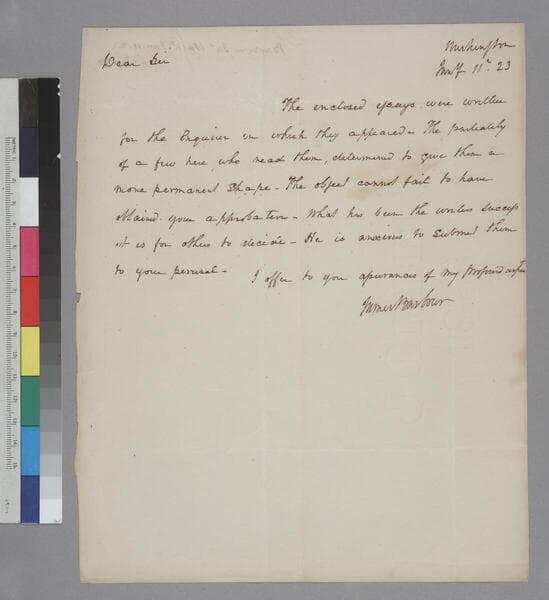 Washington
Jany 11th 23
Dear Sir
The enclosed essays were written
for the Enquirer in which they appeared - The partiality
of a few here, who read them, determined to give them a
more permanent shape - The object cannot fail to have
obtaind your approbation - What has been the writers success
it is for others to decide - He is anxious to submit them
to your perusal -
I offer to you assurances of my profound
James Barbour